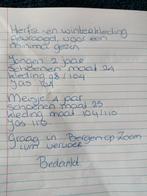 Herfst en winterkleding
gevraagd voor een
minima gezin
Jongen 2 jaar
Schoenen maat 24
kleding 98/104
jas 104
Meisje 4 jaar
schoenen maat 25
kleding maat 104/110
jas 110
Graag in Bergen op Zoom
ivm vervoer
Bedankt